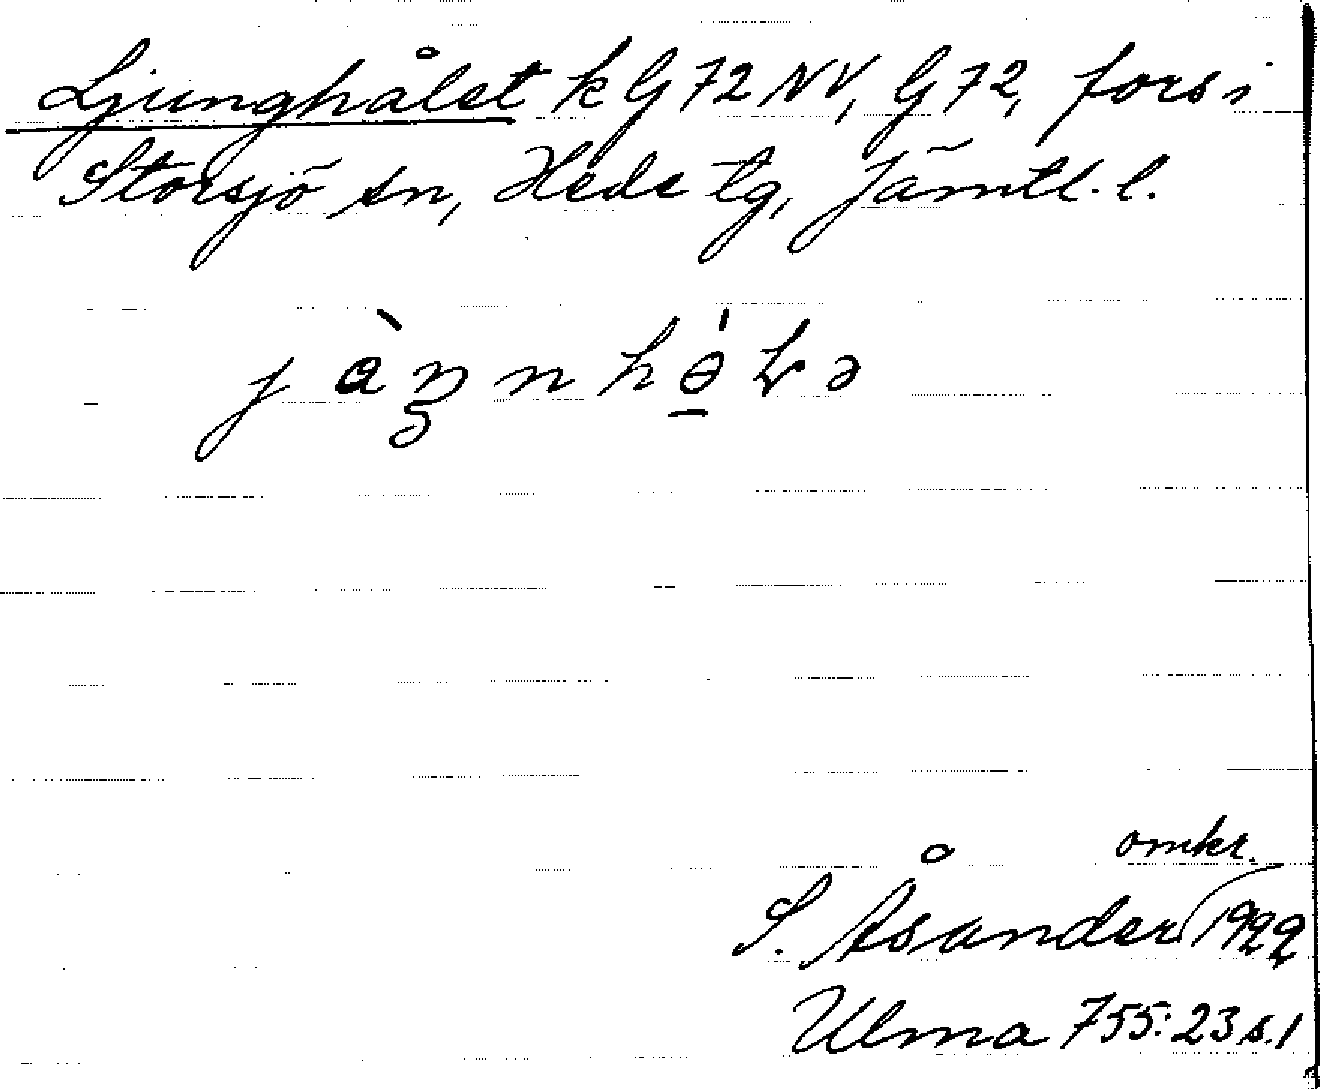 Ljunghålet k G 72 NV, G 72, fors i
Storsjö sn, Hede tg, Jämtl. l.
omkr.
S. Åsander 1922
Ulma 755:23 s.1